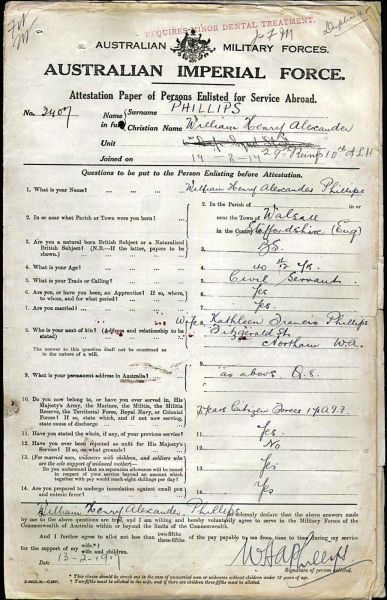 REQUIRES MINOR DENTAL TREATMENT.
AUSTRALIAN MILITARY FORCES.
AUSTRALIAN IMPERIAL FORCE.
Attestation Paper of Persons Enlisted for Service Abroad.
No. 3407
Name in full
Surname PHILLIPS
Christian Name William Henry Alexander
Unit
29th Reinf 10th ALH
Joined on 19-8-17
Questions to be put to the Person Enlisting before Attestation.
1. What is your Name?
1. William Henry Alexander Phillips
2. In or near what Parish or Town were you born?
2. In the Parish of
near the Town of Walsall
in the County of Staffordshire (Eng)
3. Are you a natural born British Subject or a Naturalized British Subject? (N.B.—If the latter, papers to be shown.)
3. B.S.
4. What is your Age?
4.
5. What is your Trade or Calling?
5. Civil Servant
6. Are you, or have you been, an Apprentice? If so, where, to whom, and for what period?
6. Yes
7. Are you married?
7. Yes.
8. Who is your next of kin? (Address and relationship to be stated)
8. Wife Kathleen Francis Phillips
Fitzgerald St
Northam W.A.
The answer to this question shall not be construed as in the nature of a will.
9. What is your permanent address in Australia?
9. as above
10. Do you now belong to, or have you ever served in, His Majesty's Army, the Marines, the Militia, the Militia Reserve, the Territorial Force, Royal Navy, or Colonial Forces? If so, state which, and if not now serving, state cause of discharge
10. Citizen Forces
11. Have you stated the whole, if any, of your previous service?
11. Yes.
12. Have you ever been rejected as unfit for His Majesty's Service? If so, on what grounds?
12. No
13. (For married men, widowers with children, and soldiers who are the sole support of widowed mother)—
Do you understand that no separation allowance will be issued in respect of your service beyond an amount which together with pay would reach eight shillings per day?
13. Yes
14. Are you prepared to undergo inoculation against small pox and enteric fever?
14. Yes
I, William Henry Alexander Phillips do solemnly declare that the above answers made by me to the above questions are true, and I am willing and hereby voluntarily agree to serve in the Military Forces of the Commonwealth of Australia within or beyond the limits of the Commonwealth.
And I further agree to allot not less than two-fifths three-fifths of the pay payable to me from time to time during my service for the support of my wife.*† wife and children.
Date 13-2-1917
W H A Phillips
Signature of person enlisted.
* This clause should be struck out in the case of unmarried men or widowers without children under 18 years of age.
† Two-fifths must be allotted to the wife, and if there are children three-fifths must be allotted.